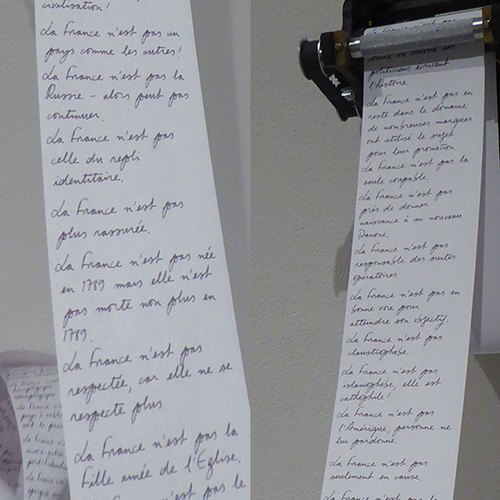 civilisation!
La France n'est pas un
pays comme les autres!
La France n'est pas la
Russie - alors peut pas
continuer.
La France n'est pas
celle du repli
identitaire.
La France n'est pas
plus rassurée.
La France n'est pas née
en 1789 mais elle n'est
pas morte non plus en
1789.
La France n'est pas
respectée, car elle ne se
respecte plus.
La France n'est pas la
Fille ainée de l'Eglise.
n'est pas le
politiciens écrivent
l'histoire.
La France n'est pas en
reste dans le domaine
de nombreuses marques
ont utilisé le sujet
pour leur promotion.
La France n'est pas la
seule coupable.
La France n'est pas
près de donner
naissance à un nouveau
Danone.
La France n'est pas
responsable des suites
opératoires
La France n'est pas en
bonne voie pour
atteindre son objectif
La France n'est pas
claustrophobe.
La France n'est pas
islamophobe, elle est
cathophile!
La France n'est pas
l'Amérique, personne ne
lui pardonne.
La France n'est pas
seulement en cause.
La France n'est pas